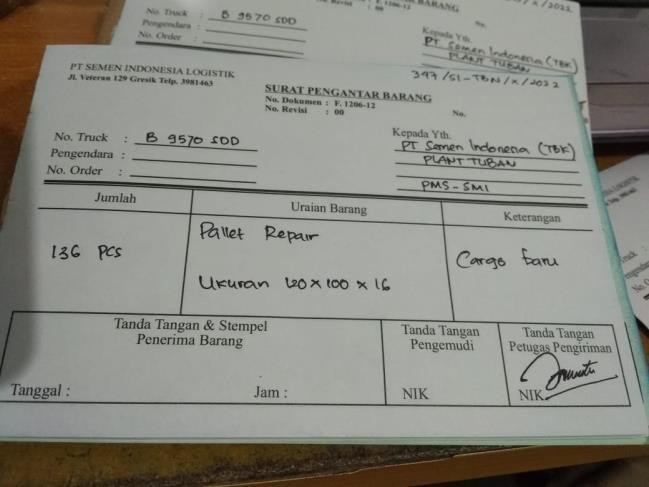 BARANG
No. Revisi : 00
F. 1206-12
No.
/X/2022
No. Truck : B 9570 SDD
Pengendara :
No. Order :
Kepada Yth.
PT Semen Indonesia (TBK)
PLANT TUBAN
PT SEMEN INDONESIA LOGISTIK
Jl. Veteran 129 Gresik Telp. 3981463
397/SI-TBN/X/2022
SURAT PENGANTAR BARANG
No. Dokumen : F. 1206-12
No. Revisi : 00
No.
No. Truck : B 9570 SDD
Pengendara :
No. Order :
Kepada Yth.
PT Semen Indonesia (TBK)
PLANT TUBAN
PMS-SMI
Jumlah
Uraian Barang
Keterangan
136 PCS
Pallet Repair
Ukuran 120 x 100 x 16
Cargo baru
Tanda Tangan & Stempel
Penerima Barang
Tanggal :
Jam :
Tanda Tangan
Pengemudi
NIK
Tanda Tangan
Petugas Pengiriman
NIK